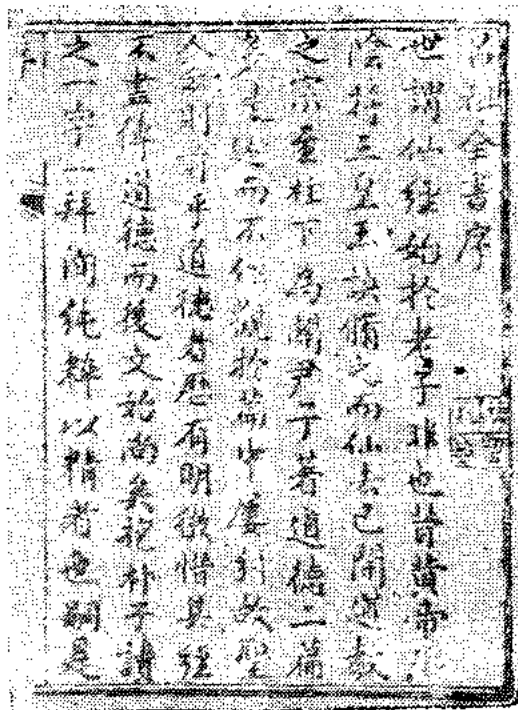 呂祖全書序
世謂仙經始於老子非也昔黃帝
陰符三皇玉訣脩之而仙去已開道教
之宗至柱下為關尹子著道德二篇
而不作觀於篇中屢引
人云道德者歷有明徵惜其經
不盡傳道德而後文始尚矣抱朴子讀
之一字一拜純粹以精者也嗣是